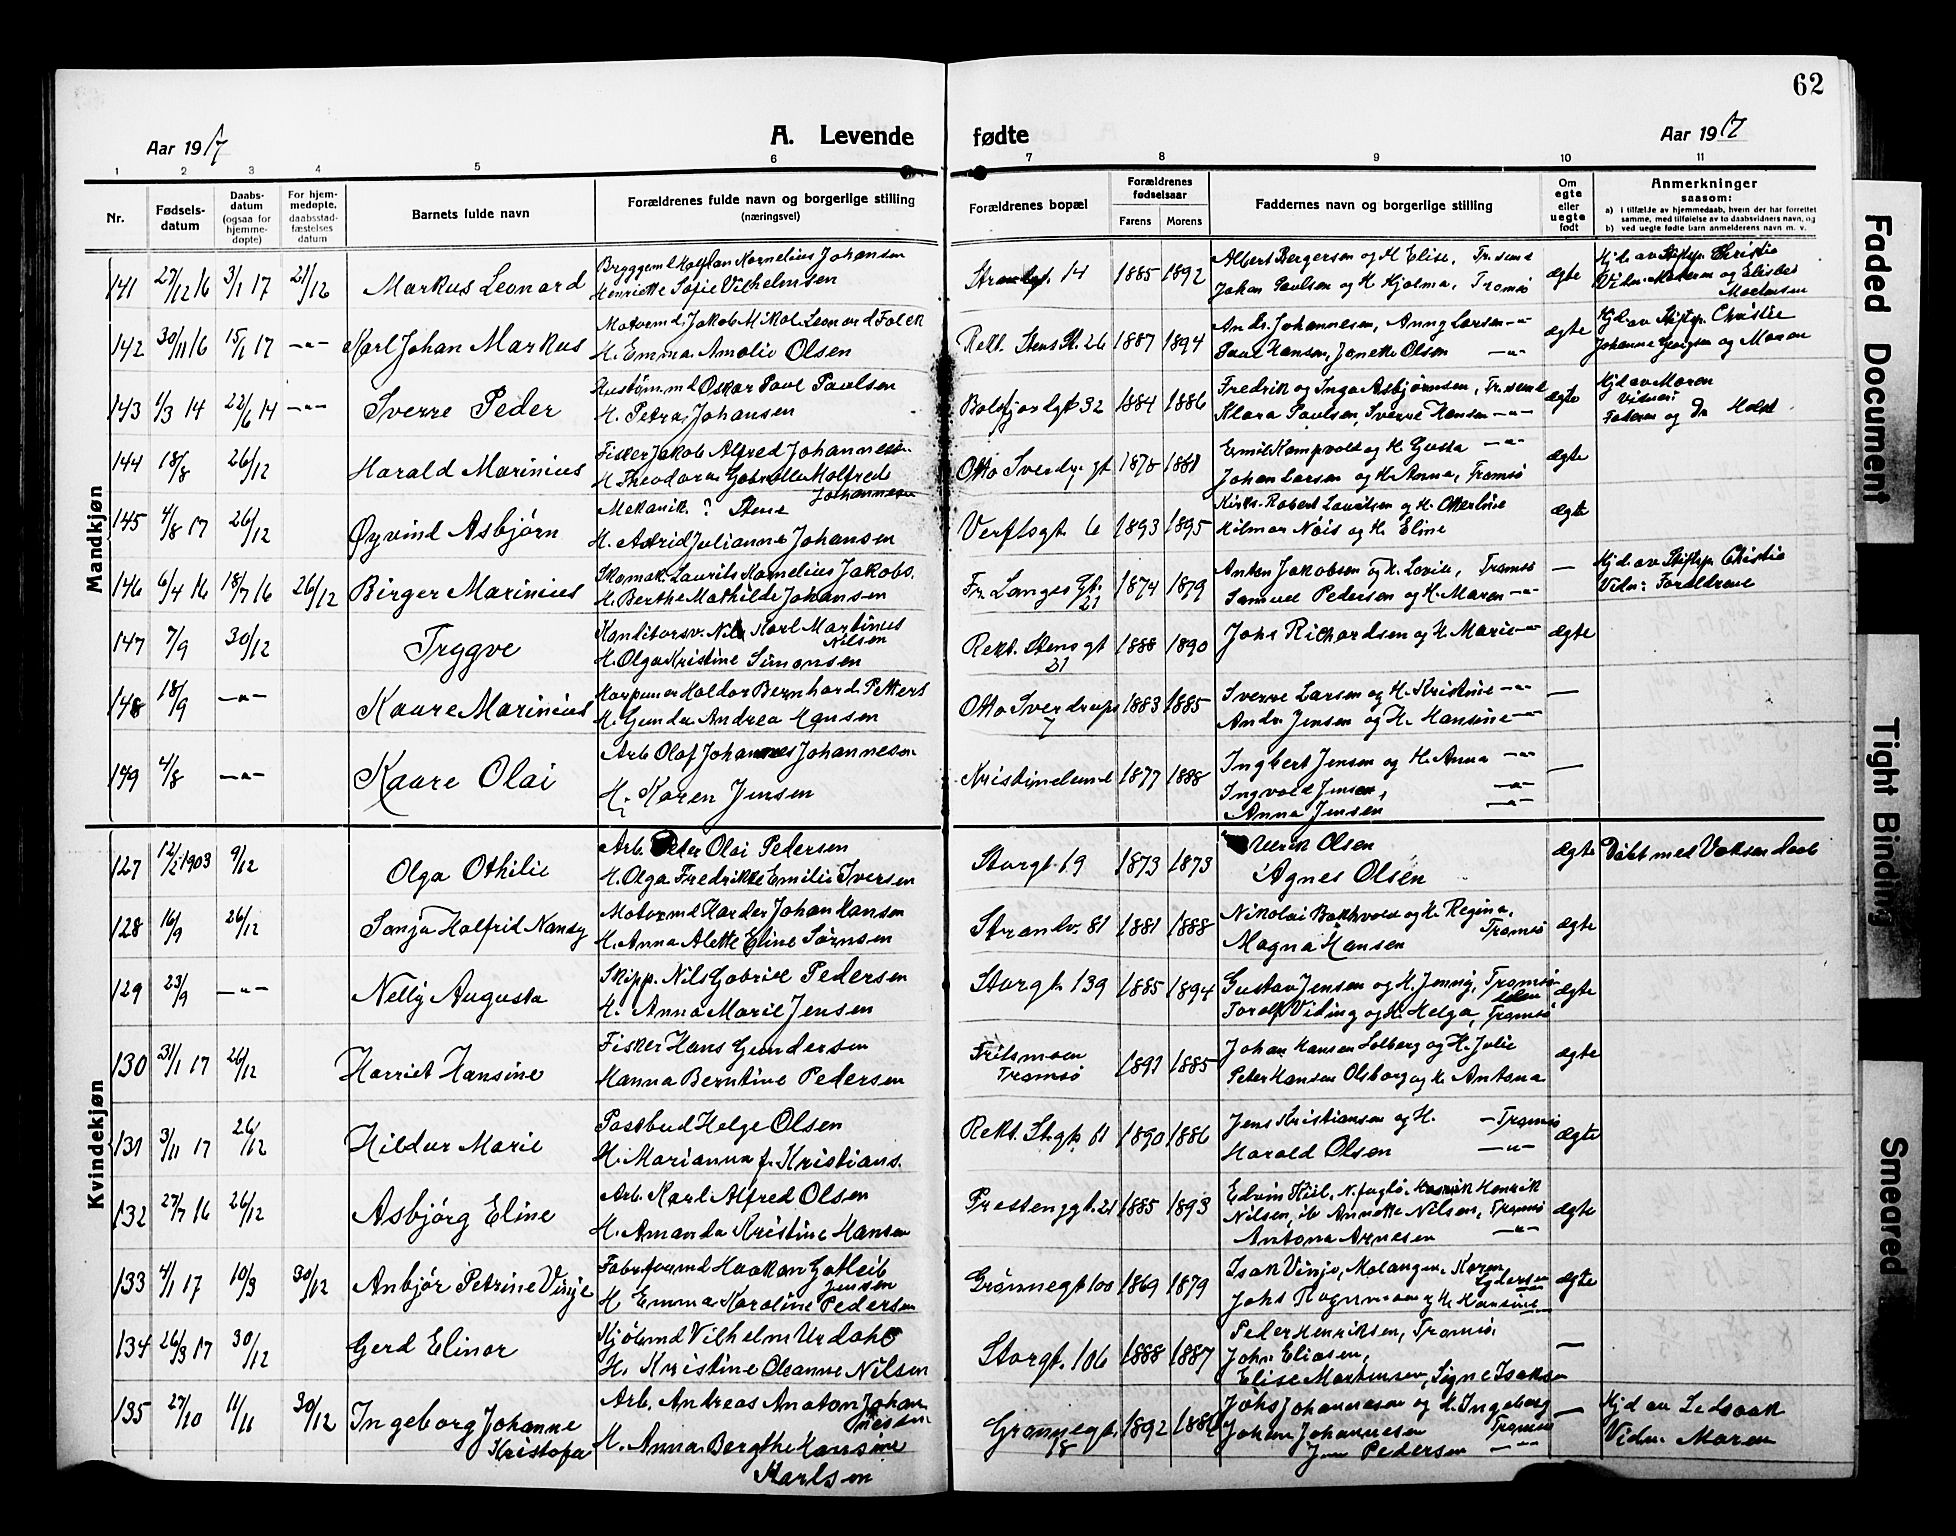 62
Aar 1917
A. Levende
fødte
Aar 1917
1 2 3 4 5 6 7 8 9 10 11
Nr.
Fødsels-
datum
Daabs-
datum
(ogsaa for
hjemme-
døpte)
For hjem-
medøpte,
daabsstad-
fæstelses
datum
Barnets fulde navn
Forældrenes fulde navn og borgerlige stilling
(næringsvei)
Forældrenes bopæl
Forældrenes
fødselsaar
Farens Morens
Faddernes navn og borgerlige stilling
Om
egte
eller
uegte
født
Anmerkninger
saasom:
a) i tilfælde av hjemmedaab, hvem der har forrettet
samme, med tilføielse av to daabsvidners navn, og
b) ved uegte fødte barn anmelderens navn m. v.
Mandkjøn
141 27/12 16 3/1 17 21/12 Markus Leonard
Halfdan Kornelius Johansen
Henriette Sofie Vilhelmsen
14 1885 1892
Albert Bergersen og H. Elise, Tr.sund
Johan Paulsen og H. Hjalma, Tromsø
ægte
142 30/11 16 15/1 17 -"- Karl Johan Markus
Motormd. Jakob Mikal Leonard Falck
H. Emma Amalie Olsen
Rekt. Stens Gt. 26 1887 1894
Andr. Johannesen, Anny Larsen -"-
Paul Hansen, Janette Olsen -"-
ægte
143 1/3 14 22/6 14 -"- Sverre Peder
Oskar Paul Paulsen
H. Petra Johansen
Balsfjordgt 32 1884 1886
Fredrik og Inga Asbjørnsen, Tr.sund
Klara Paulsen, Sverre Hansen -"-
ægte
Hjd av Moren
144 18/8 26/12 Harald Marinius
Fisker Jakob Alfred Johannessen
H. Theodora
Johannesen
Otto Sverdr. gt. 1878 1881
og H. Gusta -"-
Johan Larsen og H. Anna, Tromsø
ægte
145 4/8 17 26/12 Øyvind Asbjørn
Mekanik. ? Stene
H. Astrid Julianne Johansen
Verftsgt 6 1893 1895
Hilmar Nøis og H. Eline
ægte
146 6/4 16 18/7 16 26/12 Birger Marinius
Skomak. Laurits Kornelius Jakobs.
H. Berthe Mathilde Johansen
Fr. Langes Gt.
21
1874 1879
Anton Jakobsen og H. Lovise, Tromsø
Samuel Pedersen og H. Maren -"-
—
Hjd. av Stiftsp. Christie
Vidn: Forældrene
147 7/9 30/12 Tryggve
Konditorsv. Nils Karl Martinus
Nilsen
H. Olga Kristine Simonsen
Rekt. Stensgt
21
1888 1890
Johs Richardsen og H. Marie -"-
ægte
148 18/9 -"- Kaare Marinius
Harpuner Haldor Bernhard Petters
H. Gunda Andrea Hansen
Otto Sverdrups
7
1883 1885
Sverre Larsen og H. Kristine -"-
Andr. Jensen og H. Hansine -"-
—
149 4/8 -"- Kaare Olai
Arb. Olaf Johannes Johannesen
H. Karen Jensen
1877 1888
Ingbert Jensen og H. Anna -"-
Ingvald Jensen, -"-
Anna Jensen -"-
—
Kvindekjøn
127 12/2 1903 9/12 Olga Othilie
Arb. Peder Olai Pedersen
H. Olga Fredrikke Emilie Iversen
Storgt. 19 1873 1873
Ulrik Olsen
Agnes Olsen
ægte
Døbt med Voksen daab
128 16/9 26/12 Sonja Halfrid Nansy
Motormd Harder Johan Hansen
H. Anna Alette Eline Sørnsen
Strandv. 81 1881 1888
Nikolai Bakkvold og H. Regina,
Tromsø
Magna Hansen
ægte
129 23/9 -"- Nelly Augusta
Skipp. Nils Gabriel Pedersen
H. Anna Marie Jensen
Storgt. 139 1885 1894
Gustav Jensen og H. Jenny, Tromsø
Toralf Viding og H. Helga, Tromsø
ægte
130 31/1 17 26/12 Harriet Hansine
Fisker Hans Gundersen
Hanna Berntine Pedersen
Tromsø
1891 1885
Johan Hansen Solberg og H. Julie
Peter Hansen Olsborg og H. Antona
ægte
131 3/11 17 26/12 Hildur Marie
Postbud Helge Olsen
H. Marianna f. Kristians.
Rekt. St.gt. 61 1890 1886
Jens Kristiansen og H. - Tromsø
Harald Olsen -"-
ægte
132 27/7 16 26/12 Asbjørg Eline
Arb. Karl Alfred Olsen
H. Amanda Kristine Hansen
Prestenggt. 21 1885 1893
Henrik
Nilsen, Annette Nilsen, Tromsø
Antona Arnesen -"-
ægte
133 4/1 17 10/3 30/12 Anbjør Petrine Vinje
Haakon Gotleib
Jensen
H. Emma Karoline Pedersen
Grønnegt 100 1869 1879
Isak Vinje, Malangen. Karen
Lydersen
ægte
134 26/3 17 30/12 Gerd Elinor
Vilhelm Urdahl
H. Kristine Oleanne Nilsen
Storgt. 106 1888 1887
Peder Henriksen, Tromsø,
John Eliasen,
Elise Martensen, Signe Isaksen
—
135 27/10 11/11 30/12 Ingeborg Johanne
Kristofa
Arb. Andreas Anaton Johan
nesen
H. Anna Bergthe Hansine
Karlsen
Grønnegt.
18
1892
Johs Johannesen og H. Ingeborg
Johan Johannesen Tromsø
Pedersen -"-
—
Vidn. Moren
Faded Document
Tight Binding
Smeared